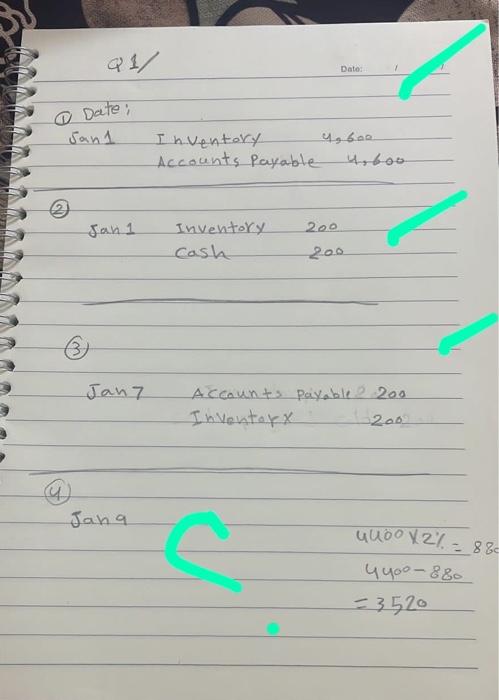 Q1/
Date: / /
① Date;
Jan 1 Inventory 4,600
Accounts Payable 4,600
②
Jan 1 Inventory 200
Cash 200
③
Jan 7 Accounts Payable 200
Inventory 200
④
Jan 9
4400 X 2% = 880
4400-880
= 3520